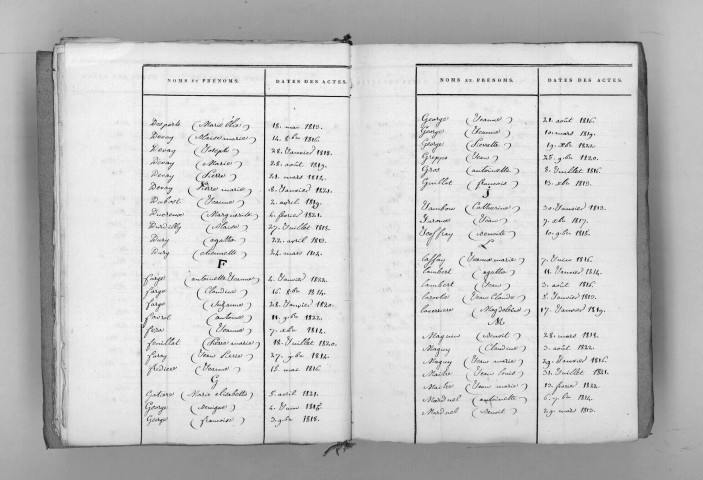 NOMS ET PRÉNOMS. DATES DES ACTES.
Desporte (Marie 18. mai 1813.
Devay (Marie marie) 14. 8bre 1816.
Devay (Joseph) 28. Janvier 1818.
Devay (Marie) 28. août 1819.
Devay (Pierre) 21. mars 1814.
Devay (Pierre marie) 8. Janvier 1821.
Dubost (Jeanne) 2. avril 1819.
Ducreux (Marguerite) 4. février 1821.
(Marie) 27. Juillet 1815.
Dury (agathe) 22. avril 1813.
Dury (etiennette) 24. mars 1814.
F
farge (antoinette Jeanne) 4. Janvier 1822.
farge (Claudine) 16. 8bre 1814.
farge (Suzanne) 28. Janvier 1820.
favrel (antoine) 11. 9bre 1822.
(Jeanne) 7. xbre 1812.
feuillat (Pierre marie) 18. Juillet 1820.
furay (Jean Pierre) 27. 9bre 1814.
(Jeanne) 15. mai 1816.
G
(Marie elisabeth) 5. avril 1821.
George (denique) 4. Juin 1815.
George (françoise) 3. 9bre 1818.
NOMS ET PRÉNOMS. DATES DES ACTES.
George (Jeanne) 21. août 1816.
George (Jeanne) 10. mars 1819.
George (Pierrette) 19. xbre 1822.
Greppo (Jean) 25. 9bre 1820.
Gros (antoinette) 8. Juillet 1816.
Guillot (françois) 13. xbre 1813.
J
Jambon (Catherine) 30. Janvier 1813.
(Jean) 7. xbre 1817.
Jeoffray (benoite) 10. 9bre 1815.
L
Laffay (Jeanne marie) 7. Juin 1816.
Lambert (agathe) 11. Janvier 1814.
Lambert (Jean) 3. août 1816.
Laroche (Jean Claude) 5. Janvier 1813.
Laverriere (Magdelaine) 17. Janvier 1819.
M
(Benoit) 28. mars 1818.
Maguy (Claudine) 3. août 1822.
Maguy (Jean marie) 29. Janvier 1816.
Maitre (Jean Louis) 31. Juillet 1821.
Maitre (Jean marie) 13. février 1822.
Marduel (antoinette) 6. 7bre 1814.
Marduel (benoit) 29. mars 1813.